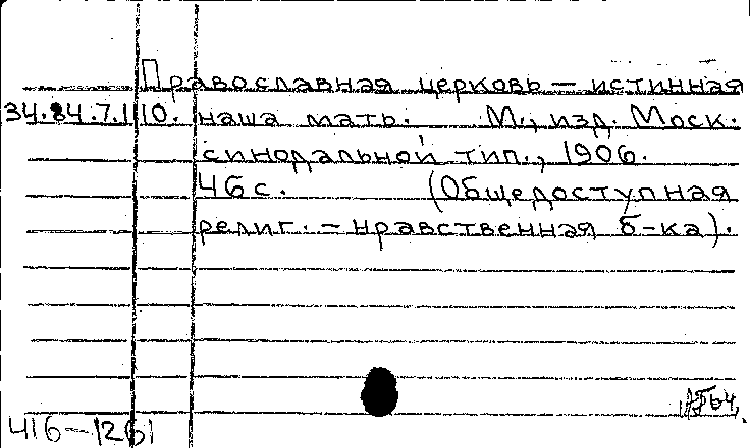 Православная церковь — истинная
34.84.7.110. наша мать. М., изд. Моск.
синодальной тип., 1906.
46 с. (Общедоступная
религ. - нравственная б-ка).
416-1261